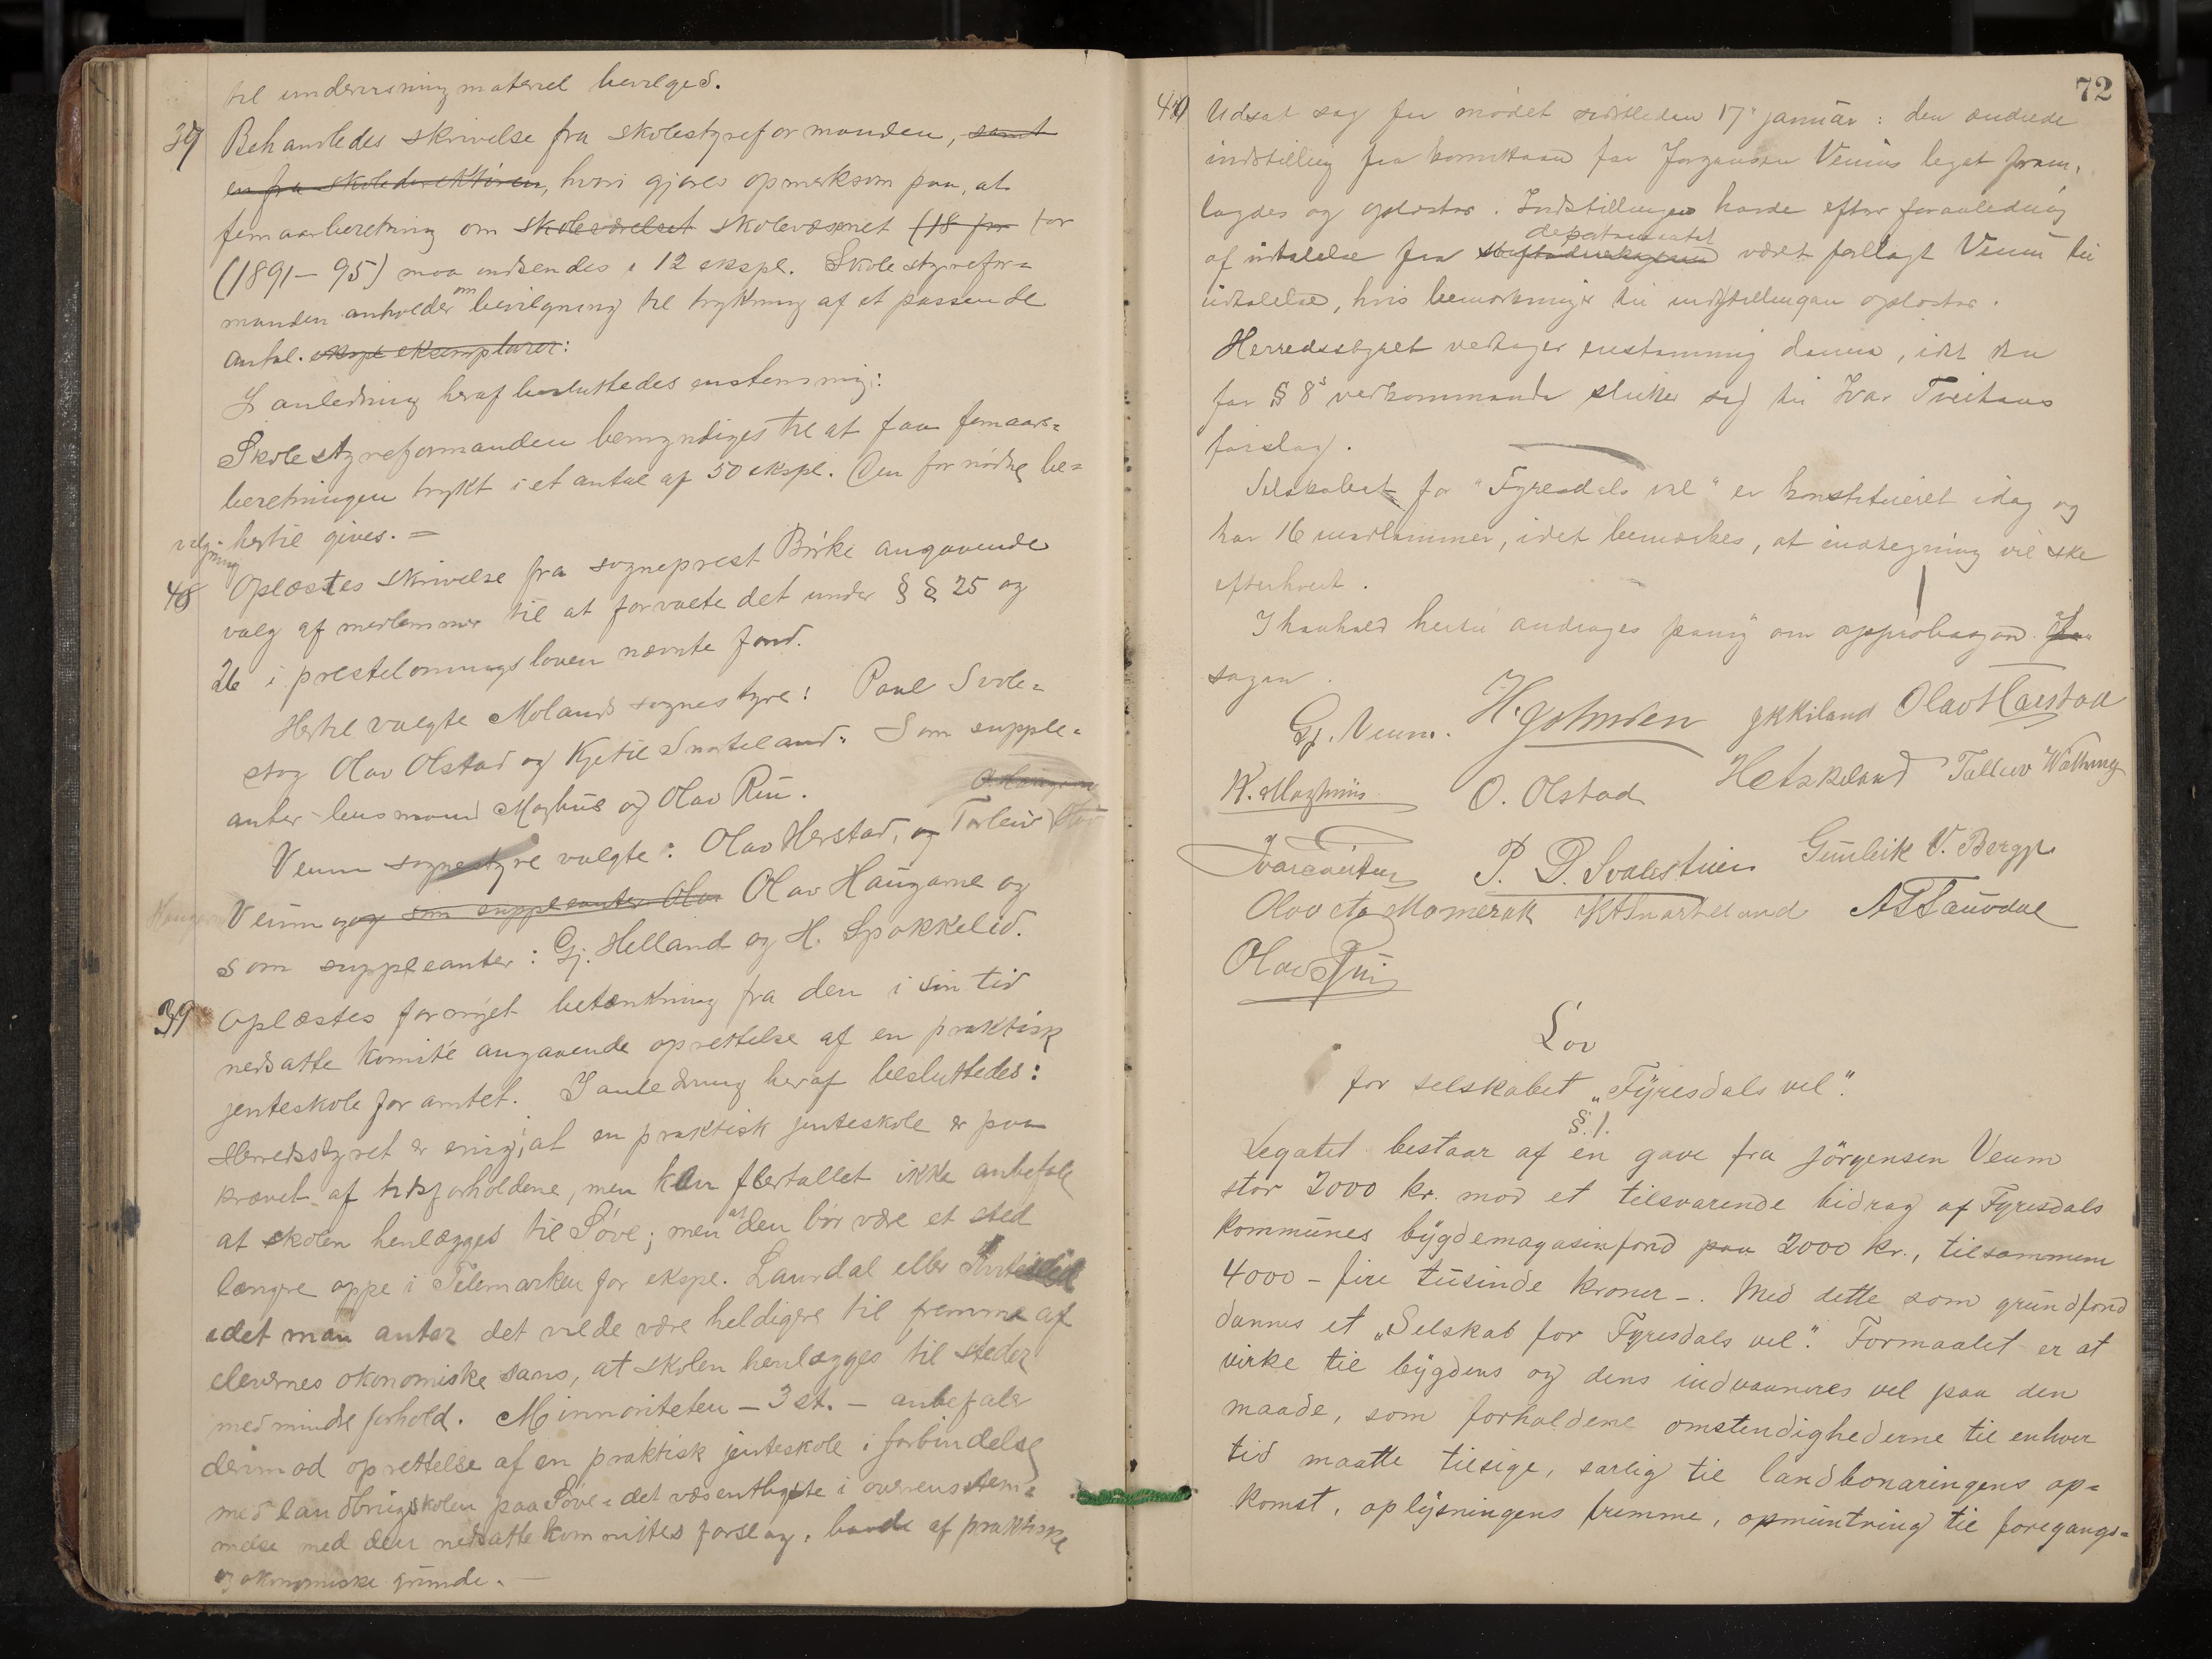 til undervisningmateriel bevilges.
37 Behandledes skrivelse fra skolestyreformanden, samt
en fra skoledirektören, hvori gjøres opmerksom paa, at
femaarberetning om skoleværelset skolevæsenet (18 for
(1891–95) maa indsendes i 12 expl. Skolestyrefor=
manden anholder om bevilgning til trykning af et passende
antal. expl eksemplarer:
I anledning heraf besluttedes enstemmig:
Skolestyreformanden bemyndiges til at faa femaars=
beretningen trykt i et antal af 50 ekspl. Den fornødne be=
vilgning hertil gives. =
48 Oplæstes skrivelse fra sogneprest Birke angaaende
valg af medlemmer til at forvalte det under § § 25 og
26 i prestelønningsloven nævnte fond.
Hertil valgte Molands sognestyre: Paul Svole=
stog Olav Olstad og Kjetil Snarteland. Som supple=
anter lensmand Maghus og Olav Rui.
Veum sognestyre valgte: Olav Herstad, og Torleiv
Veum og og som suppleanter Olav Olav Haugarne og
som suppleanter: Gj. Helland og H. Spokkelid.
39 Oplæstes fornyet betænkning fra den i sin tid
nedsatte komité angaaende oprettelse af en praktisk
jenteskole for amtet. I anledning heraf besluttedes:
Herredsstyret er enig i, at en praktisk jenteskole er paa
krævet af tidsforholdene, men kan flertallet ikke anbefale
at skolen henlægges til Søve; men at den bør være et sted
længre oppe i Telemarken for ekspl. Laurdal eller
idet man antar det vilde være heldigere til fremme af
elevernes økonomiske sans, at skolen henlægges til steder
med mindre forhold. Minnoriteten – 3 st. – anbefaler
derimod oprettelse af en praktisk jenteskole i forbindelse
med landbrugsskolen paa Søve i det væsentligste i overensstem=
melse med den nedsatte kommittes forslag, baade af praktiske
og økonomiske grunde. –
72
40 Udsat sag fra mødet sidstleden 17de januar: den ændrede
indstilling fra komiteen for Jørgensen Veums legat frem=
lagdes og oplæstes. Indstillingen havde efter foranledning
departementet
af udtalelse fra været forelagt Veum til
udtalelse, hvis bemerkninger til indstillingen oplæstes.
Herredsstyret vedtager enstemmig denne, idet den
for § 8s vedkommende slutter sig til Ivar Tveitans
forslag.
Selskabet for "Fyresdals vel" er konstitueret idag og
har 16 medlemmer, idet bemærkes, at indtegning vil ske
efterhvert.
I henhold hertil andrages paany om approbagon
sagen.
Gj. Veum. H. Gohnsen Olav Haestad
K. Maghuus O. Olstad Hetskeland Talleiv
P. P. Svalestuen Gunleik V. Berge
Olav Momrak KASnarteland
Olav Rui
Lov
for selskabet „Fyresdals vel".
§. 1.
Legatet bestaar af en gave fra Jörgensen Veum
stor 2000 kr. mod et tilsvarende bidrag af Fyresdals
kommunes bygdemagasinfond paa 2000 kr., tilsammen
4000 – fire tusinde kroner –. Med dette som grundfond
dannes et „Selskab for Fyresdals vel". Formaalet er at
virke til bygdens og dens indvaaneres vel paa den
maade, som forholdene omstendighederne til enhver
tid maatte tilsige, sarlig til landbonaringens op=
komst, oplysningens fremme, opmuntring til foregangs=